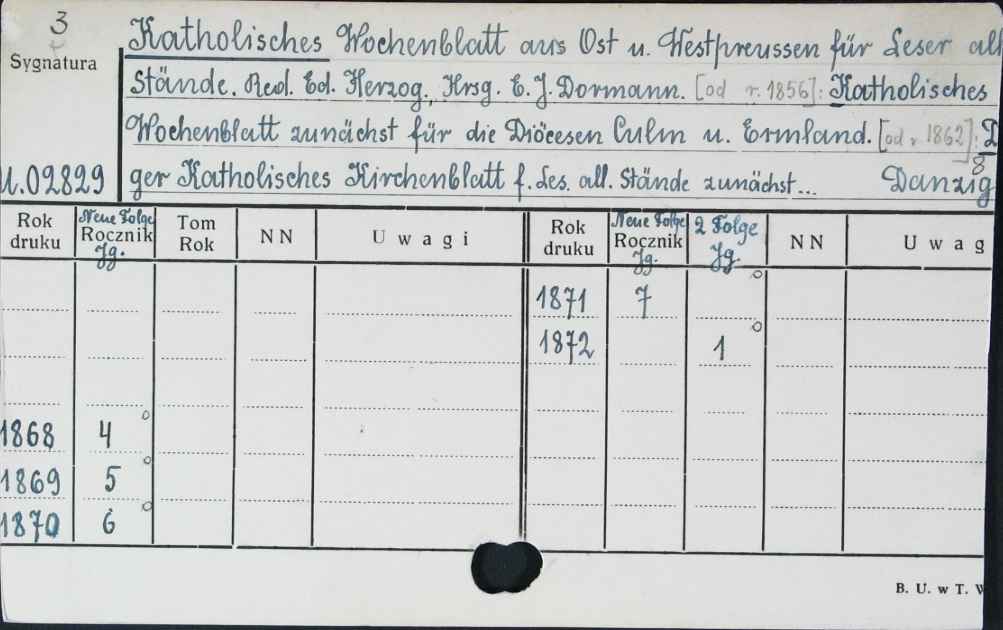 3
Sygnatura
U.02829
Katholisches Wochenblatt aus Ost u. Westpreussen für Leser all
Stände. Red. Ed. Herzog. Hrsg. E. J. Dormann. [od r. 1856]: Katholisches
Wochenblatt zunächst für die Diöcesen Culm u. Ermland. [od r. 1862]: D
ger Katholisches Kirchenblatt f. Les. all. Stände zunächst... Danzig
Rok druku Neue Folge Rocznik Jg. Tom Rok NN Uwagi Rok druku Neue Folge Rocznik Jg. 2 Folge Jg. NN Uwag
1871 7
1872 1
1868 4
1869 5
1870 6
B. U. w T.